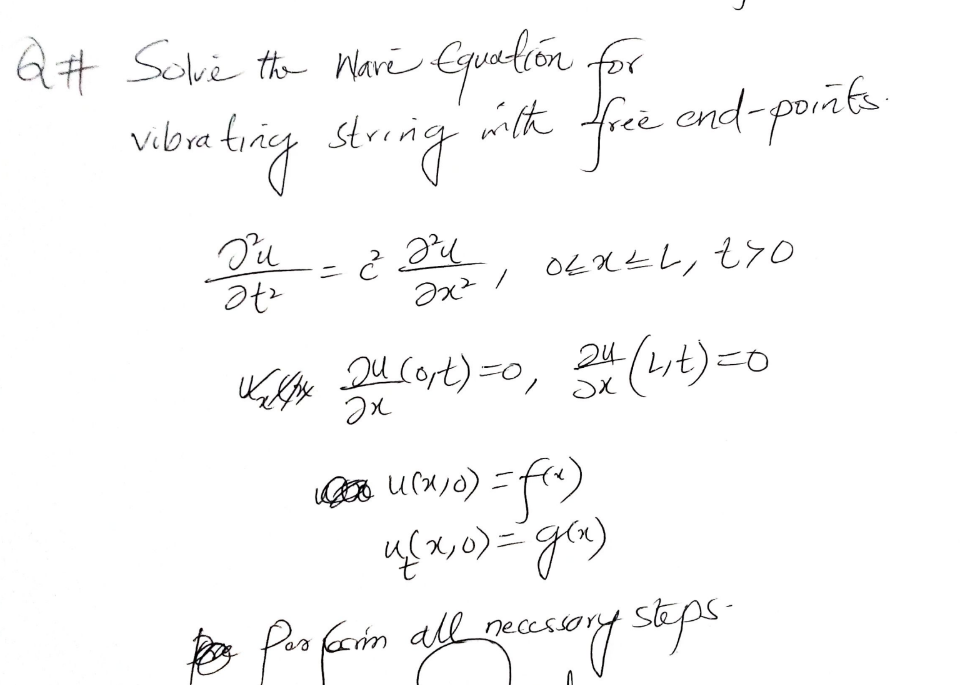 Q# Solve the Wave Equation for
vibrating string with free end-points.
∂²u/∂t² = c² ∂²u/∂x², 0≤x≤L, t>0
∂u/∂x (0,t)=0, ∂u/∂x (L,t)=0
u(x,0) = f(x)
u_t(x,0) = g(x)
Perform all necessary steps.